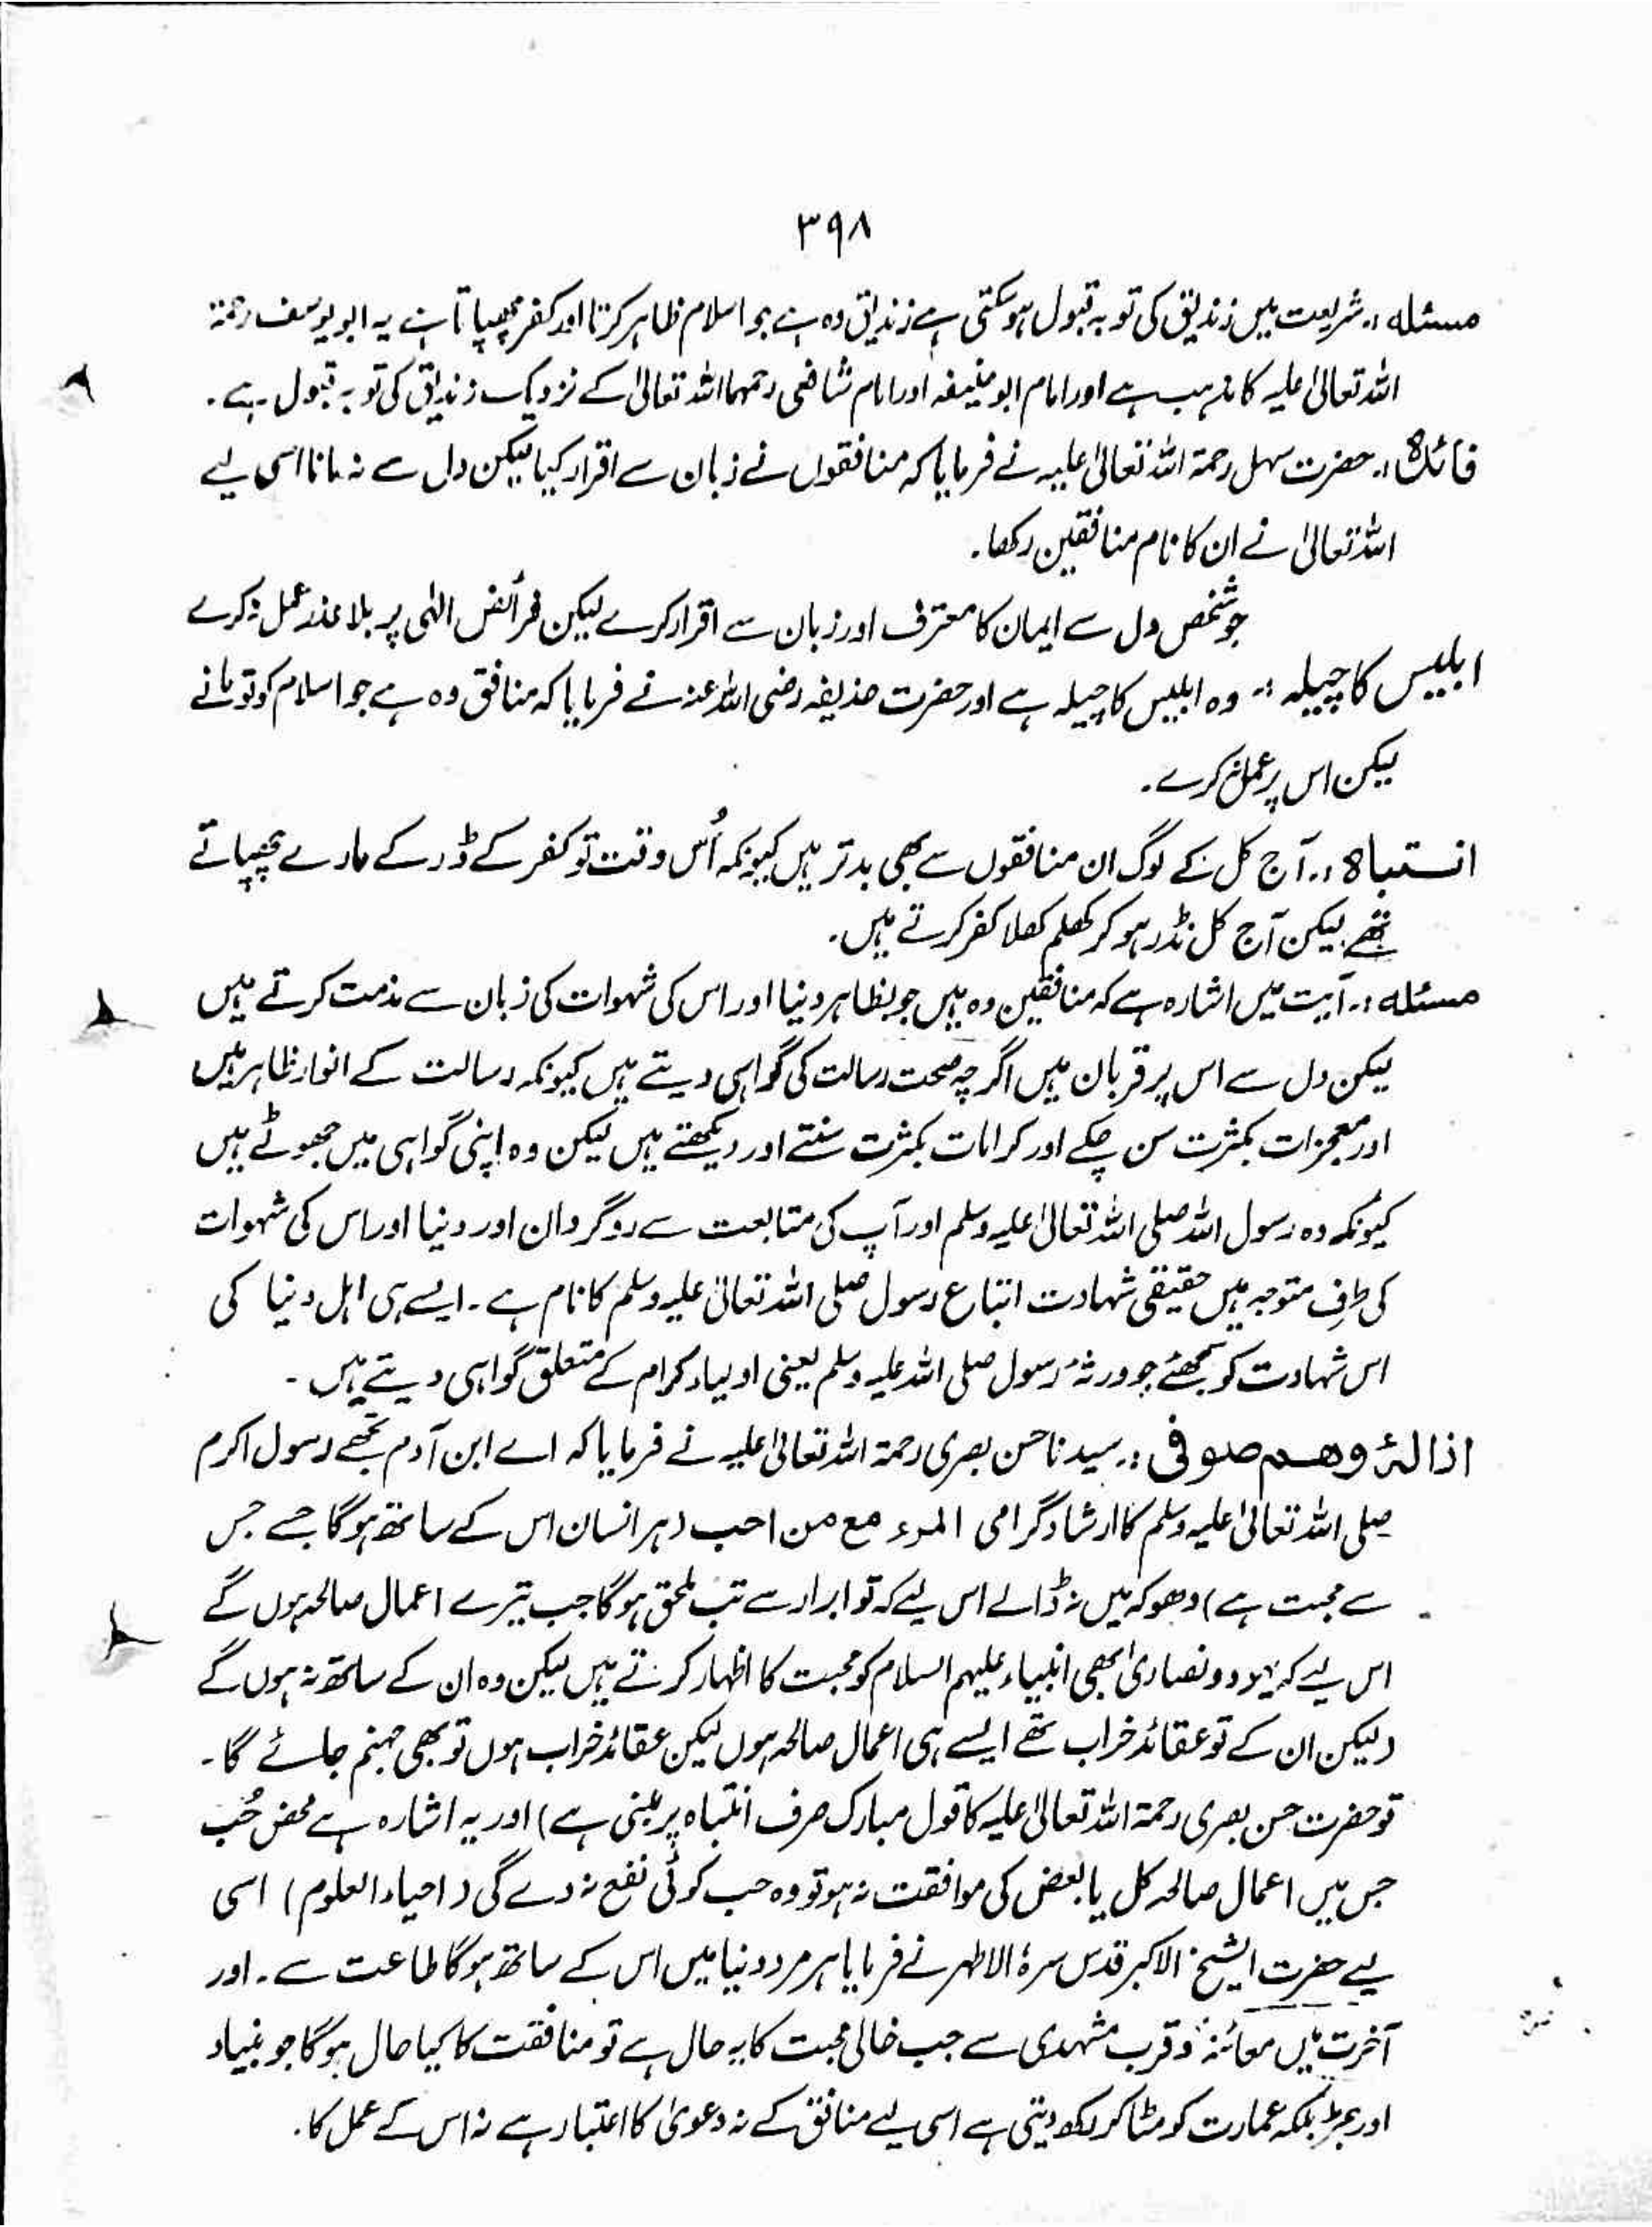 ۳۹۸
مسئلہ :۔ شریعت میں زندیق کی توبہ قبول ہوسکتی ہے زندیق وہ ہے جو اسلام ظاہر کرتا اور کفر چھپاتا ہے یہ ابو یوسف رحمۃ
اللہ تعالیٰ علیہ کا مذہب ہے اور امام ابو حنیفہ اور امام شافعی رحمہما اللہ تعالیٰ کے نزدیک زندیق کی توبہ قبول ہے۔
فائدہ :۔ حضرت سہل رحمۃ اللہ تعالیٰ علیہ نے فرمایا کہ منافقوں نے زبان سے اقرار کیا لیکن دل سے نہ مانا اسی لیے
اللہ تعالیٰ نے ان کا نام منافقین رکھا۔
جو شخص دل سے ایمان کا معترف اور زبان سے اقرار کرے لیکن فرائض الٰہی پر بلا عذر عمل نہ کرے
ابلیس کا چیلہ :۔ وہ ابلیس کا چیلہ ہے اور حضرت حذیفہ رضی اللہ عنہ نے فرمایا کہ منافق وہ ہے جو اسلام کو تو مانے
لیکن اس پر عمل نہ کرے۔
انتباہ :۔ آج کل کے لوگ ان منافقوں سے بھی بدتر ہیں کیونکہ اُس وقت تو کفر کے ڈر کے مارے چھپاتے
تھے لیکن آج کل نڈر ہو کر کھلم کھلا کفر کرتے ہیں۔
مسئلہ :۔ آیت میں اشارہ ہے کہ منافقین وہ ہیں جو بظاہر دنیا اور اس کی شہوات کی زبان سے مذمت کرتے ہیں
لیکن دل سے اس پر قربان ہیں اگرچہ صحت رسالت کی گواہی دیتے ہیں کیونکہ رسالت کے انوار ظاہر ہیں
اور معجزات بکثرت سن چکے اور کرامات بکثرت سنتے اور دیکھتے ہیں لیکن وہ اپنی گواہی میں جھوٹے ہیں
کیونکہ وہ رسول اللہ صلی اللہ تعالیٰ علیہ وسلم اور آپ کی متابعت سے روگردان اور دنیا اور اس کی شہوات
کی طرف متوجہ ہیں حقیقی شہادت اتباع رسول صلی اللہ تعالیٰ علیہ وسلم کا نام ہے۔ ایسے ہی اہل دنیا کی
اس شہادت کو سمجھئے جو ورثۂ رسول صلی اللہ علیہ وسلم یعنی اولیاء کرام کے متعلق گواہی دیتے ہیں۔
ازالۂ وھم صوفی :۔ سیدنا حسن بصری رحمۃ اللہ تعالیٰ علیہ نے فرمایا کہ اے ابن آدم تجھے رسول اکرم
صلی اللہ تعالیٰ علیہ وسلم کا ارشاد گرامی المرء مع من احب (ہر انسان اس کے ساتھ ہوگا جسے جس
سے محبت ہے) دھوکہ میں نہ ڈالے اس لیے کہ تو ابرار سے تب ملحق ہوگا جب تیرے اعمال صالحہ ہوں گے
اس لیے کہ یہود و نصاریٰ بھی انبیاء علیہم السلام کو محبت کا اظہار کرتے ہیں لیکن وہ ان کے ساتھ نہ ہوں گے
(لیکن ان کے تو عقائد خراب تھے ایسے ہی اعمال صالحہ ہوں لیکن عقائد خراب ہوں تو بھی جہنم جائے گا۔
تو حضرت حسن بصری رحمۃ اللہ تعالیٰ علیہ کا قول مبارک صرف انتباہ پر مبنی ہے) اور یہ اشارہ ہے محض حُب
جس میں اعمال صالحہ کل یا بعض کی موافقت نہ ہو تو وہ حب کوئی نفع نہ دے گی (احیاء العلوم) اسی
لیے حضرت الشیخ الاکبر قدس سرہٗ الاطہر نے فرمایا ہر مرد دنیا میں اس کے ساتھ ہوگا طاعت سے۔ اور
آخرت میں معائنہ و قرب مشہدی سے جب خالی محبت کا یہ حال ہے تو منافقت کا کیا حال ہوگا جو بنیاد
اور جڑ بلکہ عمارت کو مٹا کر رکھ دیتی ہے اسی لیے منافق کے نہ دعویٰ کا اعتبار ہے نہ اس کے عمل کا۔